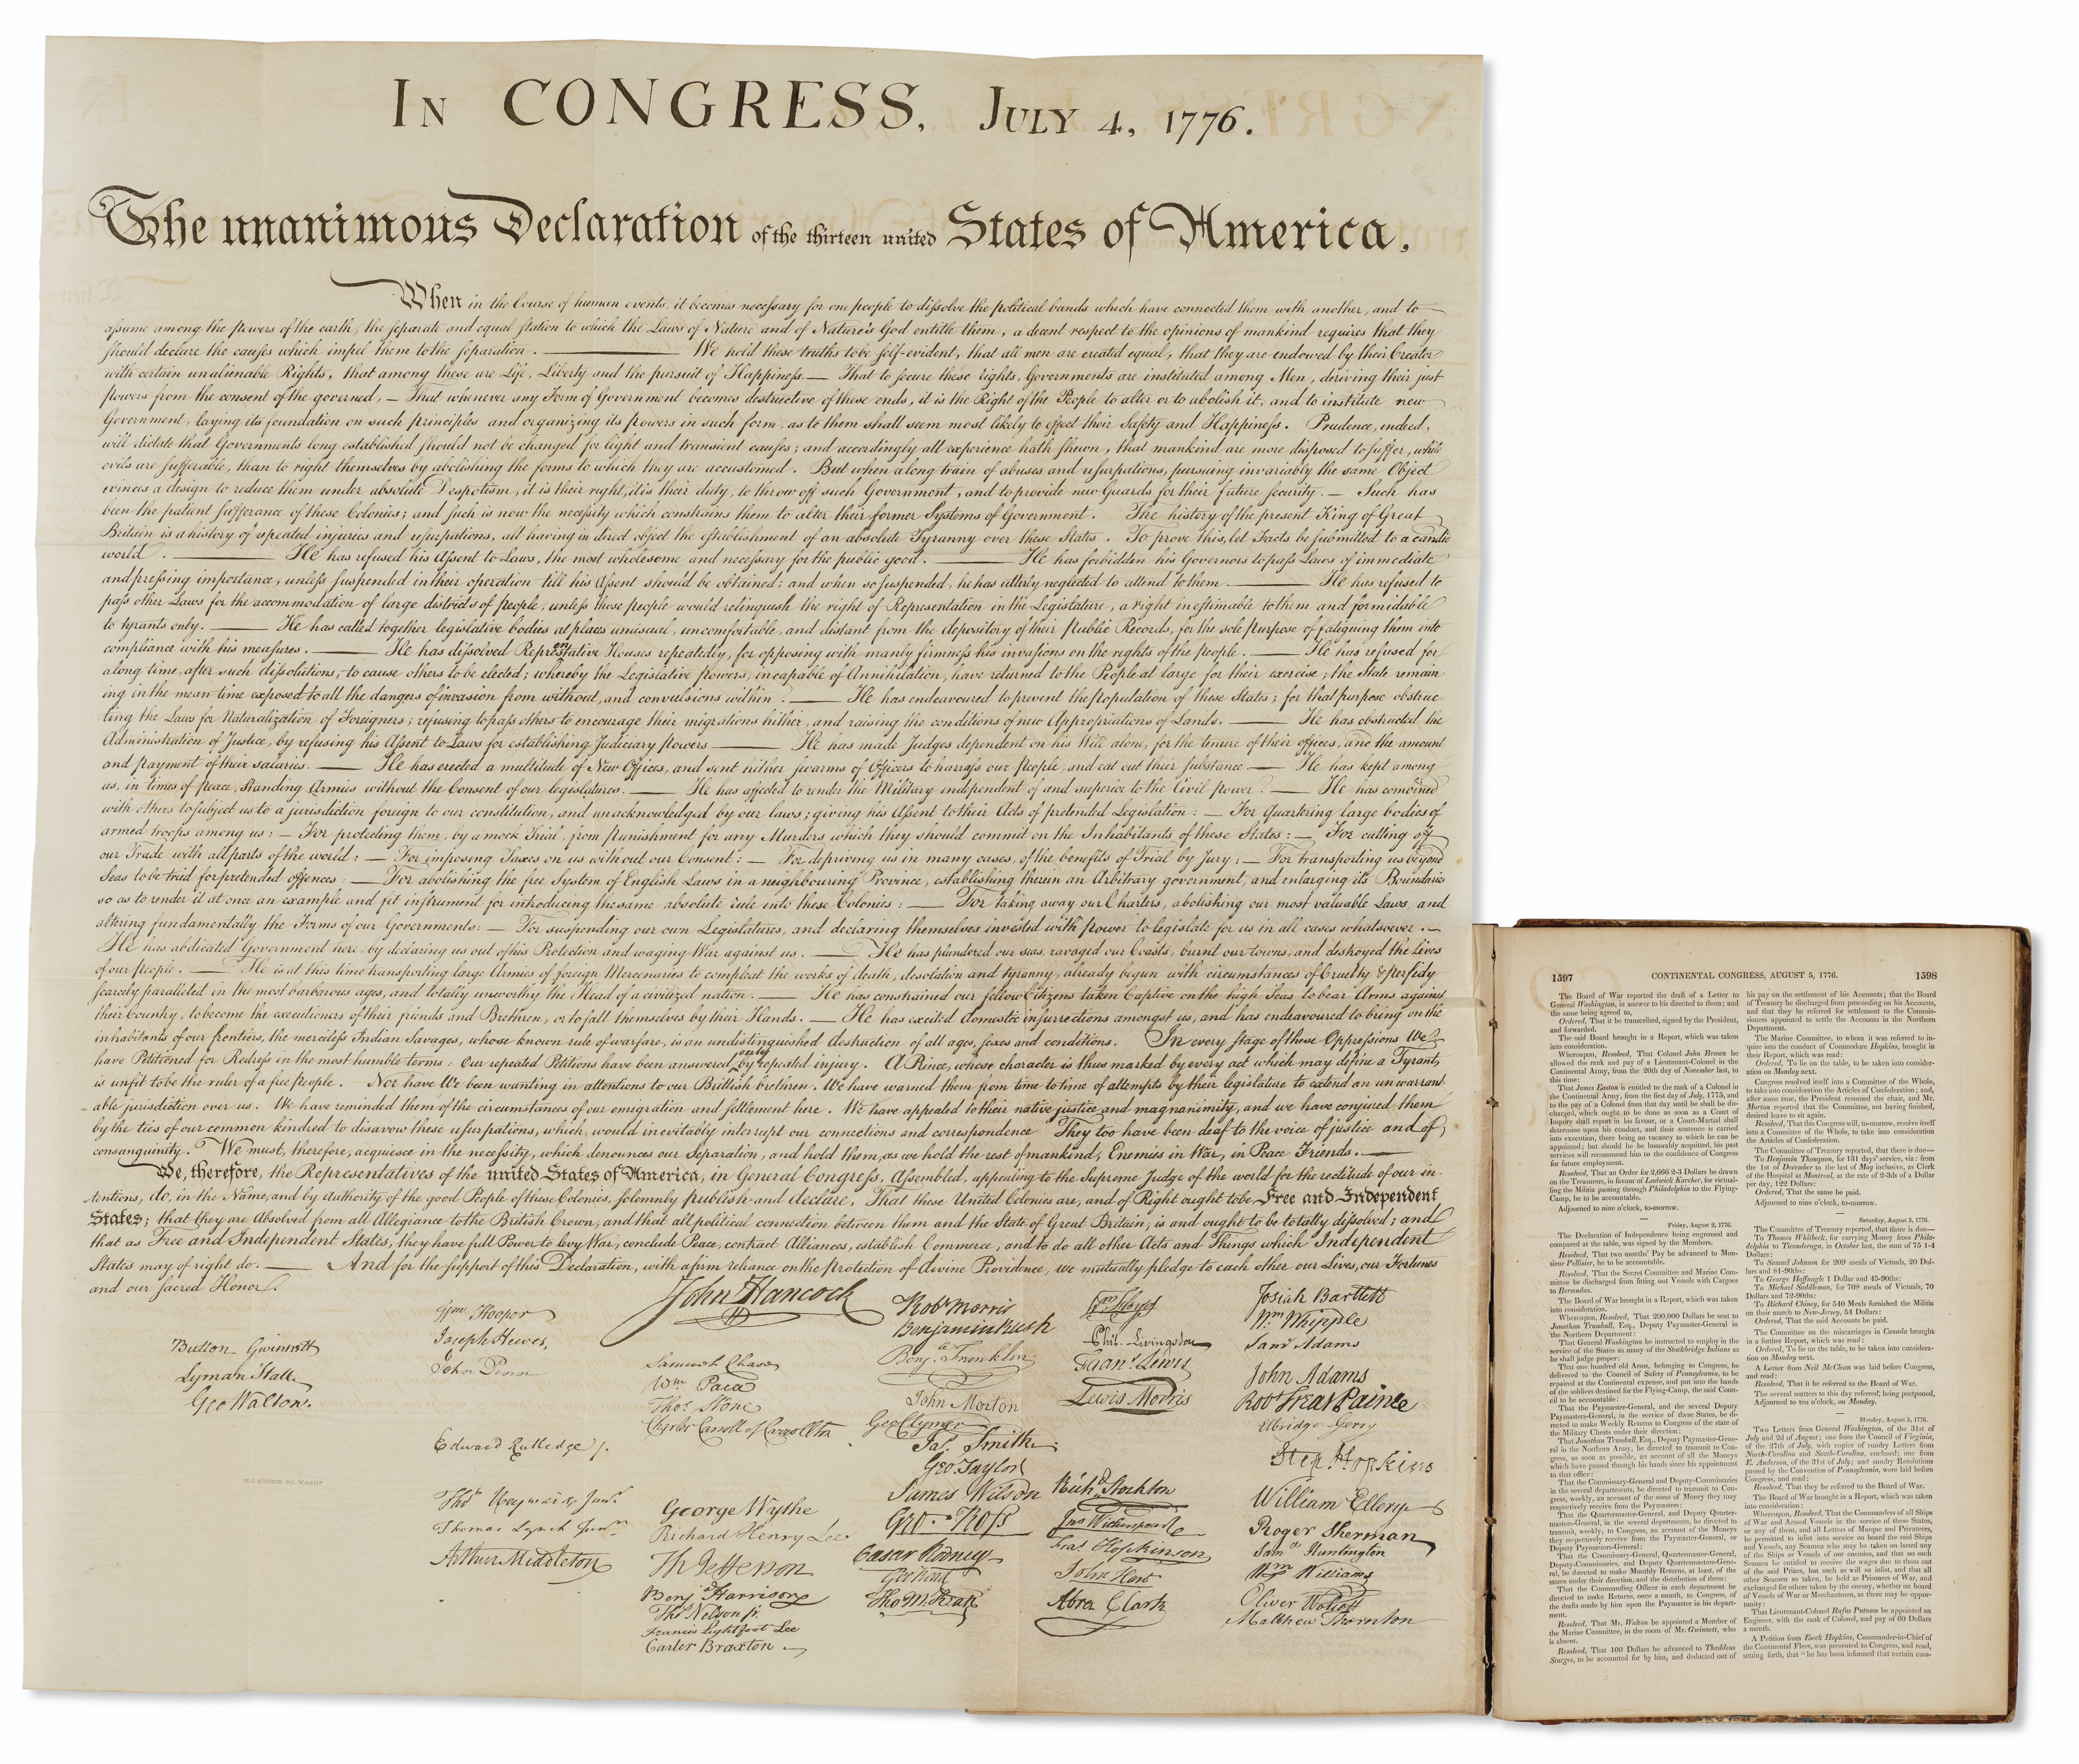 IN CONGRESS, JULY 4, 1776.
The unanimous Declaration of the thirteen united States of America,
When in the Course of human events, it becomes necessary for one people to dissolve the political bands which have connected them with another, and to
assume among the powers of the earth, the separate and equal station to which the Laws of Nature and of Nature's God entitle them, a decent respect to the opinions of mankind requires that they
should declare the causes which impel them to the separation. —— We hold these truths to be self-evident, that all men are created equal, that they are endowed by their Creator
with certain unalienable Rights, that among these are Life, Liberty and the pursuit of Happiness.— That to secure these rights, Governments are instituted among Men, deriving their just
powers from the consent of the governed, — That whenever any Form of Government becomes destructive of these ends, it is the Right of the People to alter or to abolish it, and to institute new
Government, laying its foundation on such principles and organizing its powers in such form, as to them shall seem most likely to effect their Safety and Happiness. Prudence, indeed,
will dictate that Governments long established should not be changed for light and transient causes; and accordingly all experience hath shewn, that mankind are more disposed to suffer, while
evils are sufferable, than to right themselves by abolishing the forms to which they are accustomed. But when a long train of abuses and usurpations, pursuing invariably the same Object
evinces a design to reduce them under absolute Despotism, it is their right, it is their duty, to throw off such Government, and to provide new Guards for their future security. — Such has
been the patient sufferance of these Colonies; and such is now the necessity which constrains them to alter their former Systems of Government. The history of the present King of Great
Britain is a history of repeated injuries and usurpations, all having in direct object the establishment of an absolute Tyranny over these States. To prove this, let Facts be submitted to a candid
world. —— He has refused his Assent to Laws, the most wholesome and necessary for the public good. —— He has forbidden his Governors to pass Laws of immediate
and pressing importance, unless suspended in their operation till his Assent should be obtained; and when so suspended, he has utterly neglected to attend to them. —— He has refused to
pass other Laws for the accommodation of large districts of people, unless those people would relinquish the right of Representation in the Legislature, a right inestimable to them and formidable
to tyrants only. —— He has called together legislative bodies at places unusual, uncomfortable, and distant from the depository of their Public Records, for the sole purpose of fatiguing them into
compliance with his measures. —— He has dissolved Representative Houses repeatedly, for opposing with manly firmness his invasions on the rights of the people. —— He has refused for
a long time, after such dissolutions, to cause others to be elected; whereby the Legislative powers, incapable of Annihilation, have returned to the People at large for their exercise; the State remain-
ing in the mean time exposed to all the dangers of invasion from without, and convulsions within. —— He has endeavoured to prevent the population of these States; for that purpose obstruc-
ting the Laws for Naturalization of Foreigners; refusing to pass others to encourage their migrations hither, and raising the conditions of new Appropriations of Lands. —— He has obstructed the
Administration of Justice, by refusing his Assent to Laws for establishing Judiciary powers —— He has made Judges dependent on his Will alone, for the tenure of their offices, and the amount
and payment of their salaries. —— He has erected a multitude of New Offices, and sent hither swarms of Officers to harrass our people, and eat out their substance —— He has kept among
us, in times of peace, Standing Armies without the Consent of our legislatures. —— He has affected to render the Military independent of and superior to the Civil power. —— He has combined
with others to subject us to a jurisdiction foreign to our constitution, and unacknowledged by our laws; giving his Assent to their Acts of pretended Legislation: — For quartering large bodies of
armed troops among us: — For protecting them, by a mock Trial, from punishment for any Murders which they should commit on the Inhabitants of these States: — For cutting off
our Trade with all parts of the world: — For imposing Taxes on us without our Consent: — For depriving us in many cases, of the benefits of Trial by Jury; — For transporting us beyond
Seas to be tried for pretended offences: — For abolishing the free System of English Laws in a neighbouring Province, establishing therein an Arbitrary government, and enlarging its Boundaries
so as to render it at once an example and fit instrument for introducing the same absolute rule into these Colonies: — For taking away our Charters, abolishing our most valuable Laws, and
altering fundamentally the Forms of our Governments: — For suspending our own Legislatures, and declaring themselves invested with power to legislate for us in all cases whatsoever. —
He has abdicated Government here, by declaring us out of his Protection and waging War against us. —— He has plundered our seas, ravaged our Coasts, burnt our towns, and destroyed the Lives
of our people. —— He is at this time transporting large Armies of foreign Mercenaries to compleat the works of death, desolation and tyranny, already begun with circumstances of Cruelty & perfidy
scarcely paralleled in the most barbarous ages, and totally unworthy the Head of a civilized nation. —— He has constrained our fellow Citizens taken Captive on the high Seas to bear Arms against
their Country, to become the executioners of their friends and Brethren, or to fall themselves by their Hands. —— He has excited domestic insurrections amongst us, and has endeavoured to bring on the
inhabitants of our frontiers, the merciless Indian Savages, whose known rule of warfare, is an undistinguished destruction of all ages, sexes and conditions. In every stage of these Oppressions We
have Petitioned for Redress in the most humble terms: Our repeated Petitions have been answered only by repeated injury. A Prince, whose character is thus marked by every act which may define a Tyrant,
is unfit to be the ruler of a free people. Nor have We been wanting in attentions to our Brittish brethren. We have warned them from time to time of attempts by their legislature to extend an unwarrant-
able jurisdiction over us. We have reminded them of the circumstances of our emigration and settlement here. We have appealed to their native justice and magnanimity, and we have conjured them
by the ties of our common kindred to disavow these usurpations, which, would inevitably interrupt our connections and correspondence They too have been deaf to the voice of justice and of
consanguinity. We must, therefore, acquiesce in the necessity, which denounces our Separation, and hold them, as we hold the rest of mankind, Enemies in War, in Peace Friends. ——
We, therefore, the Representatives of the united States of America, in General Congress, Assembled, appealing to the Supreme Judge of the world for the rectitude of our in-
tentions, do, in the Name, and by Authority of the good People of these Colonies, solemnly publish and declare, That these United Colonies are, and of Right ought to be Free and Independent
States; that they are Absolved from all Allegiance to the British Crown, and that all political connection between them and the State of Great Britain, is and ought to be totally dissolved; and
that as Free and Independent States, they have full Power to levy War, conclude Peace, contract Alliances, establish Commerce, and to do all other Acts and Things which Independent
States may of right do. —— And for the support of this Declaration, with a firm reliance on the protection of divine Providence, we mutually pledge to each other our Lives, our Fortunes
and our sacred Honor.
Button Gwinnett
Lyman Hall
Geo Walton.
Wm Hooper
Joseph Hewes,
John Penn
Edward Rutledge /.
Thos Heyward Junr.
Thomas Lynch Junr.
Arthur Middleton
John Hancock
Samuel Chase
Wm Paca
Thos. Stone
Charles Carroll of Carrollton
George Wythe
Richard Henry Lee
Th Jefferson
Benj Harrison
Thos Nelson jr.
Francis Lightfoot Lee
Carter Braxton
Robt Morris
Benjamin Rush
Benja. Franklin
John Morton
Geo Clymer
Jas. Smith
Geo. Taylor
James Wilson
Geo. Ross
Caesar Rodney
Geo Read
Tho M:Kean
Wm Floyd
Phil. Livingston
Frans. Lewis
Lewis Morris
Richd. Stockton
Jno Witherspoon
Fras. Hopkinson
John Hart
Abra Clark
Josiah Bartlett
Wm Whipple
Saml Adams
John Adams
Robt Treat Paine
Elbridge Gerry
Step. Hopkins
William Ellery
Roger Sherman
Saml Huntington
Wm Williams
Oliver Wolcott
Matthew Thornton
W.J.STONE SC. WASHN
1597 CONTINENTAL CONGRESS, AUGUST 5, 1776. 1598
The Board of War reported the draft of a Letter to
General Washington, in answer to his directed to them; and
the same being agreed to,
Ordered, That it be transcribed, signed by the President,
and forwarded.
The said Board brought in a Report, which was taken
into consideration.
Whereupon, Resolved, That Colonel John Brown be
allowed the rank and pay of a Lieutenant-Colonel in the
Continental Army, from the 20th day of November last, to
this time:
That James Easton is entitled to the rank of a Colonel in
the Continental Army, from the first day of July, 1775, and
to the pay of a Colonel from that day until he shall be dis-
charged, which ought to be done as soon as a Court of
Inquiry shall report in his favour, or a Court-Martial shall
determine upon his conduct, and their sentence is carried
into execution, there being no vacancy to which he can be
appointed; but should he be honorably acquitted, his past
services will recommend him to the confidence of Congress
for future employment.
Resolved, That an Order for 2,666 2-3 Dollars be drawn
on the Treasurers, in favour of Ludwick Karcher, for victual-
ling the Militia passing through Philadelphia to the Flying-
Camp, he to be accountable.
Adjourned to nine o'clock, to-morrow.
Friday, August 2, 1776.
The Declaration of Independence being engrossed and
compared at the table, was signed by the Members.
Resolved, That two months' Pay be advanced to Mon-
sieur Pellisier, he to be accountable.
Resolved, That the Secret Committee and Marine Com-
mittee be discharged from fitting out Vessels with Cargoes
to Bermudas.
The Board of War brought in a Report, which was taken
into consideration.
Whereupon, Resolved, That 200,000 Dollars be sent to
Jonathan Trumbull, Esq., Deputy Paymaster-General in
the Northern Department:
That General Washington be instructed to employ in the
service of the States as many of the Stockbridge Indians as
he shall judge proper:
That one hundred old Arms, belonging to Congress, be
delivered to the Council of Safety of Pennsylvania, to be
repaired at the Continental expense, and put into the hands
of the soldiers destined for the Flying-Camp, the said Coun-
cil to be accountable:
That the Paymaster-General, and the several Deputy
Paymasters-General, in the service of these States, be di-
rected to make Weekly Returns to Congress of the state of
the Military Chests under their direction:
That Jonathan Trumbull, Esq., Deputy Paymaster-Gene-
ral in the Northern Army, be directed to transmit to Con-
gress, as soon as possible, an account of all the Moneys
which have passed through his hands since his appointment
to that office:
That the Commissary-General and Deputy-Commissaries
in the several departments, be directed to transmit to Con-
gress, weekly, an account of the sums of Money they may
respectively receive from the Paymasters:
That the Quartermaster-General, and Deputy Quarter-
masters-General, in the several departments, be directed to
transmit, weekly, to Congress, an account of the Moneys
they respectively receive from the Paymaster-General, or
Deputy Paymasters-General:
That the Commissary-General, Quartermaster-General,
Deputy-Commissaries, and Deputy Quartermasters-Gene-
ral, be directed to make Monthly Returns, at least, of the
stores under their direction, and the distribution of them:
That the Commanding Officer in each department be
directed to make Returns, once a month, to Congress, of
the drafts made by him upon the Paymaster in his depart-
ment.
Resolved, That Mr. Walton be appointed a Member of
the Marine Committee, in the room of Mr. Gwinnett, who
is absent.
Resolved, That 100 Dollars be advanced to Thaddeus
Sturges, to be accounted for by him, and deducted out of
his pay on the settlement of his Accounts; that the Board
of Treasury be discharged from proceeding on his Accounts,
and that they be referred for settlement to the Commis-
sioners appointed to settle the Accounts in the Northern
Department.
The Marine Committee, to whom it was referred to in-
quire into the conduct of Commodore Hopkins, brought in
their Report, which was read:
Ordered, To lie on the table, to be taken into consider-
ation on Monday next.
Congress resolved itself into a Committee of the Whole,
to take into consideration the Articles of Confederation; and,
after some time, the President resumed the chair, and Mr.
Morton reported that the Committee, not having finished,
desired leave to sit again.
Resolved, That this Congress will, to-morrow, resolve itself
into a Committee of the Whole, to take into consideration
the Articles of Confederation.
The Committee of Treasury reported, that there is due—
To Benjamin Thompson, for 131 days' service, viz: from
the 1st of December to the last of May inclusive, as Clerk
of the Hospital at Montreal, at the rate of 2-3ds of a Dollar
per day, 122 Dollars:
Ordered, That the same be paid.
Adjourned to nine o'clock, to-morrow.
Saturday, August 3, 1776.
The Committee of Treasury reported, that there is due—
To Thomas Whitbeck, for carrying Money from Phila-
delphia to Ticonderoga, in October last, the sum of 75 1-4
Dollars:
To Samuel Johnson for 209 meals of Victuals, 20 Dol-
lars and 81-90ths:
To George Hoffnagle 1 Dollar and 45-90ths:
To Michael Saddleman, for 708 meals of Victuals, 70
Dollars and 72-90ths:
To Richard Chiney, for 540 Meals furnished the Militia
on their march to New-Jersey, 54 Dollars:
Ordered, That the said Accounts be paid.
The Committee on the miscarriages in Canada brought
in a further Report, which was read:
Ordered, To lie on the table, to be taken into considera-
tion on Monday next.
A Letter from Neil McClean was laid before Congress,
and read:
Resolved, That it be referred to the Board of War.
The several matters to this day referred; being postponed,
Adjourned to ten o'clock, on Monday.
Monday, August 5, 1776.
Two Letters from General Washington, of the 31st of
July and 2d of August; one from the Council of Virginia,
of the 27th of July, with copies of sundry Letters from
North-Carolina and South-Carolina, enclosed; one from
E. Anderson, of the 31st of July; and sundry Resolutions
passed by the Convention of Pennsylvania, were laid before
Congress, and read:
Resolved, That they be referred to the Board of War.
The Board of War brought in a Report, which was taken
into consideration:
Whereupon, Resolved, That the Commanders of all Ships
of War and Armed Vessels in the service of these States,
or any of them, and all Letters of Marque and Privateers,
be permitted to inlist into service on board the said Ships
and Vessels, any Seamen who may be taken on board any
of the Ships or Vessels of our enemies, and that no such
Seamen be entitled to receive the wages due to them out
of the said Prizes, but such as will so inlist, and that all
other Seamen so taken, be held as Prisoners of War, and
exchanged for others taken by the enemy, whether on board
of Vessels of War or Merchantmen, as there may be oppor-
tunity:
That Lieutenant-Colonel Rufus Putnam be appointed an
Engineer, with the rank of Colonel, and pay of 60 Dollars
a month.
A Petition from Eseck Hopkins, Commander-in-Chief of
the Continental Fleet, was presented to Congress, and read,
setting forth, that "he has been informed that certain com-